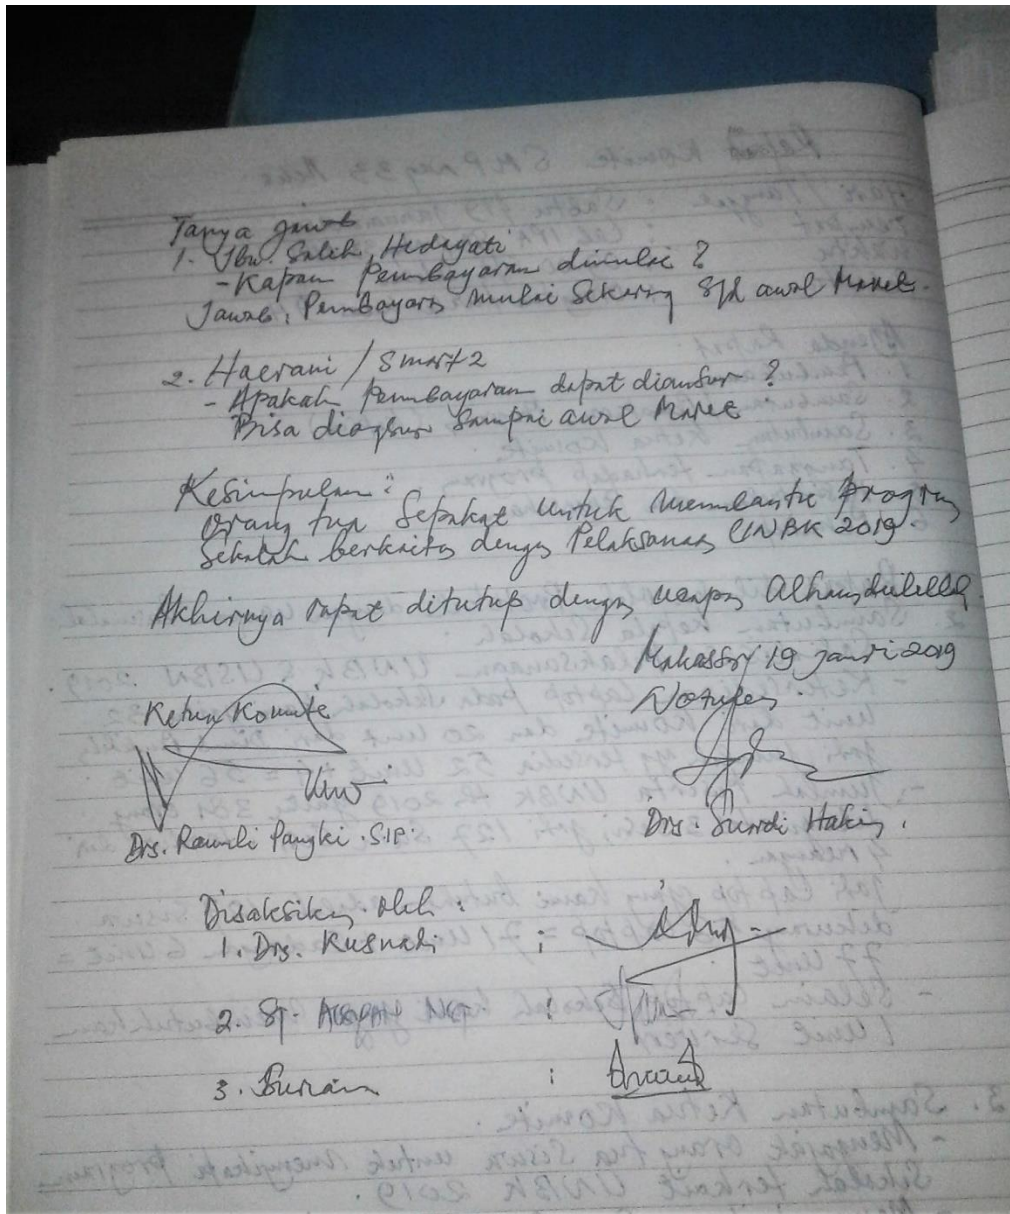 Tanya jawab
1. Ibu. Salih Hedayati
- Kapan Pembayaran dimulai ?
Jawab : Pembayaran mulai Sekarang S/d awal Maret.
2. Haerani / Smart 2
- Apakah Pembayaran dapat diansur ?
Bisa diangsur Sampai awal Maret
Kesimpulan :
Orang tua Sepakat untuk membantu Program
Sekolah berkaitan dengan Pelaksanaan UNBK 2019
Akhirnya rapat ditutup dengan ucapan Alhamdulillah.
Makassar, 19 Januari 2019
Ketua Komite
Notulen
Drs. Ramli Pangki . S.IP.
Drs. Suardi Hakim.
Disaksikan oleh :
1. Drs. Kusnadi :
2. ST. :
3. :